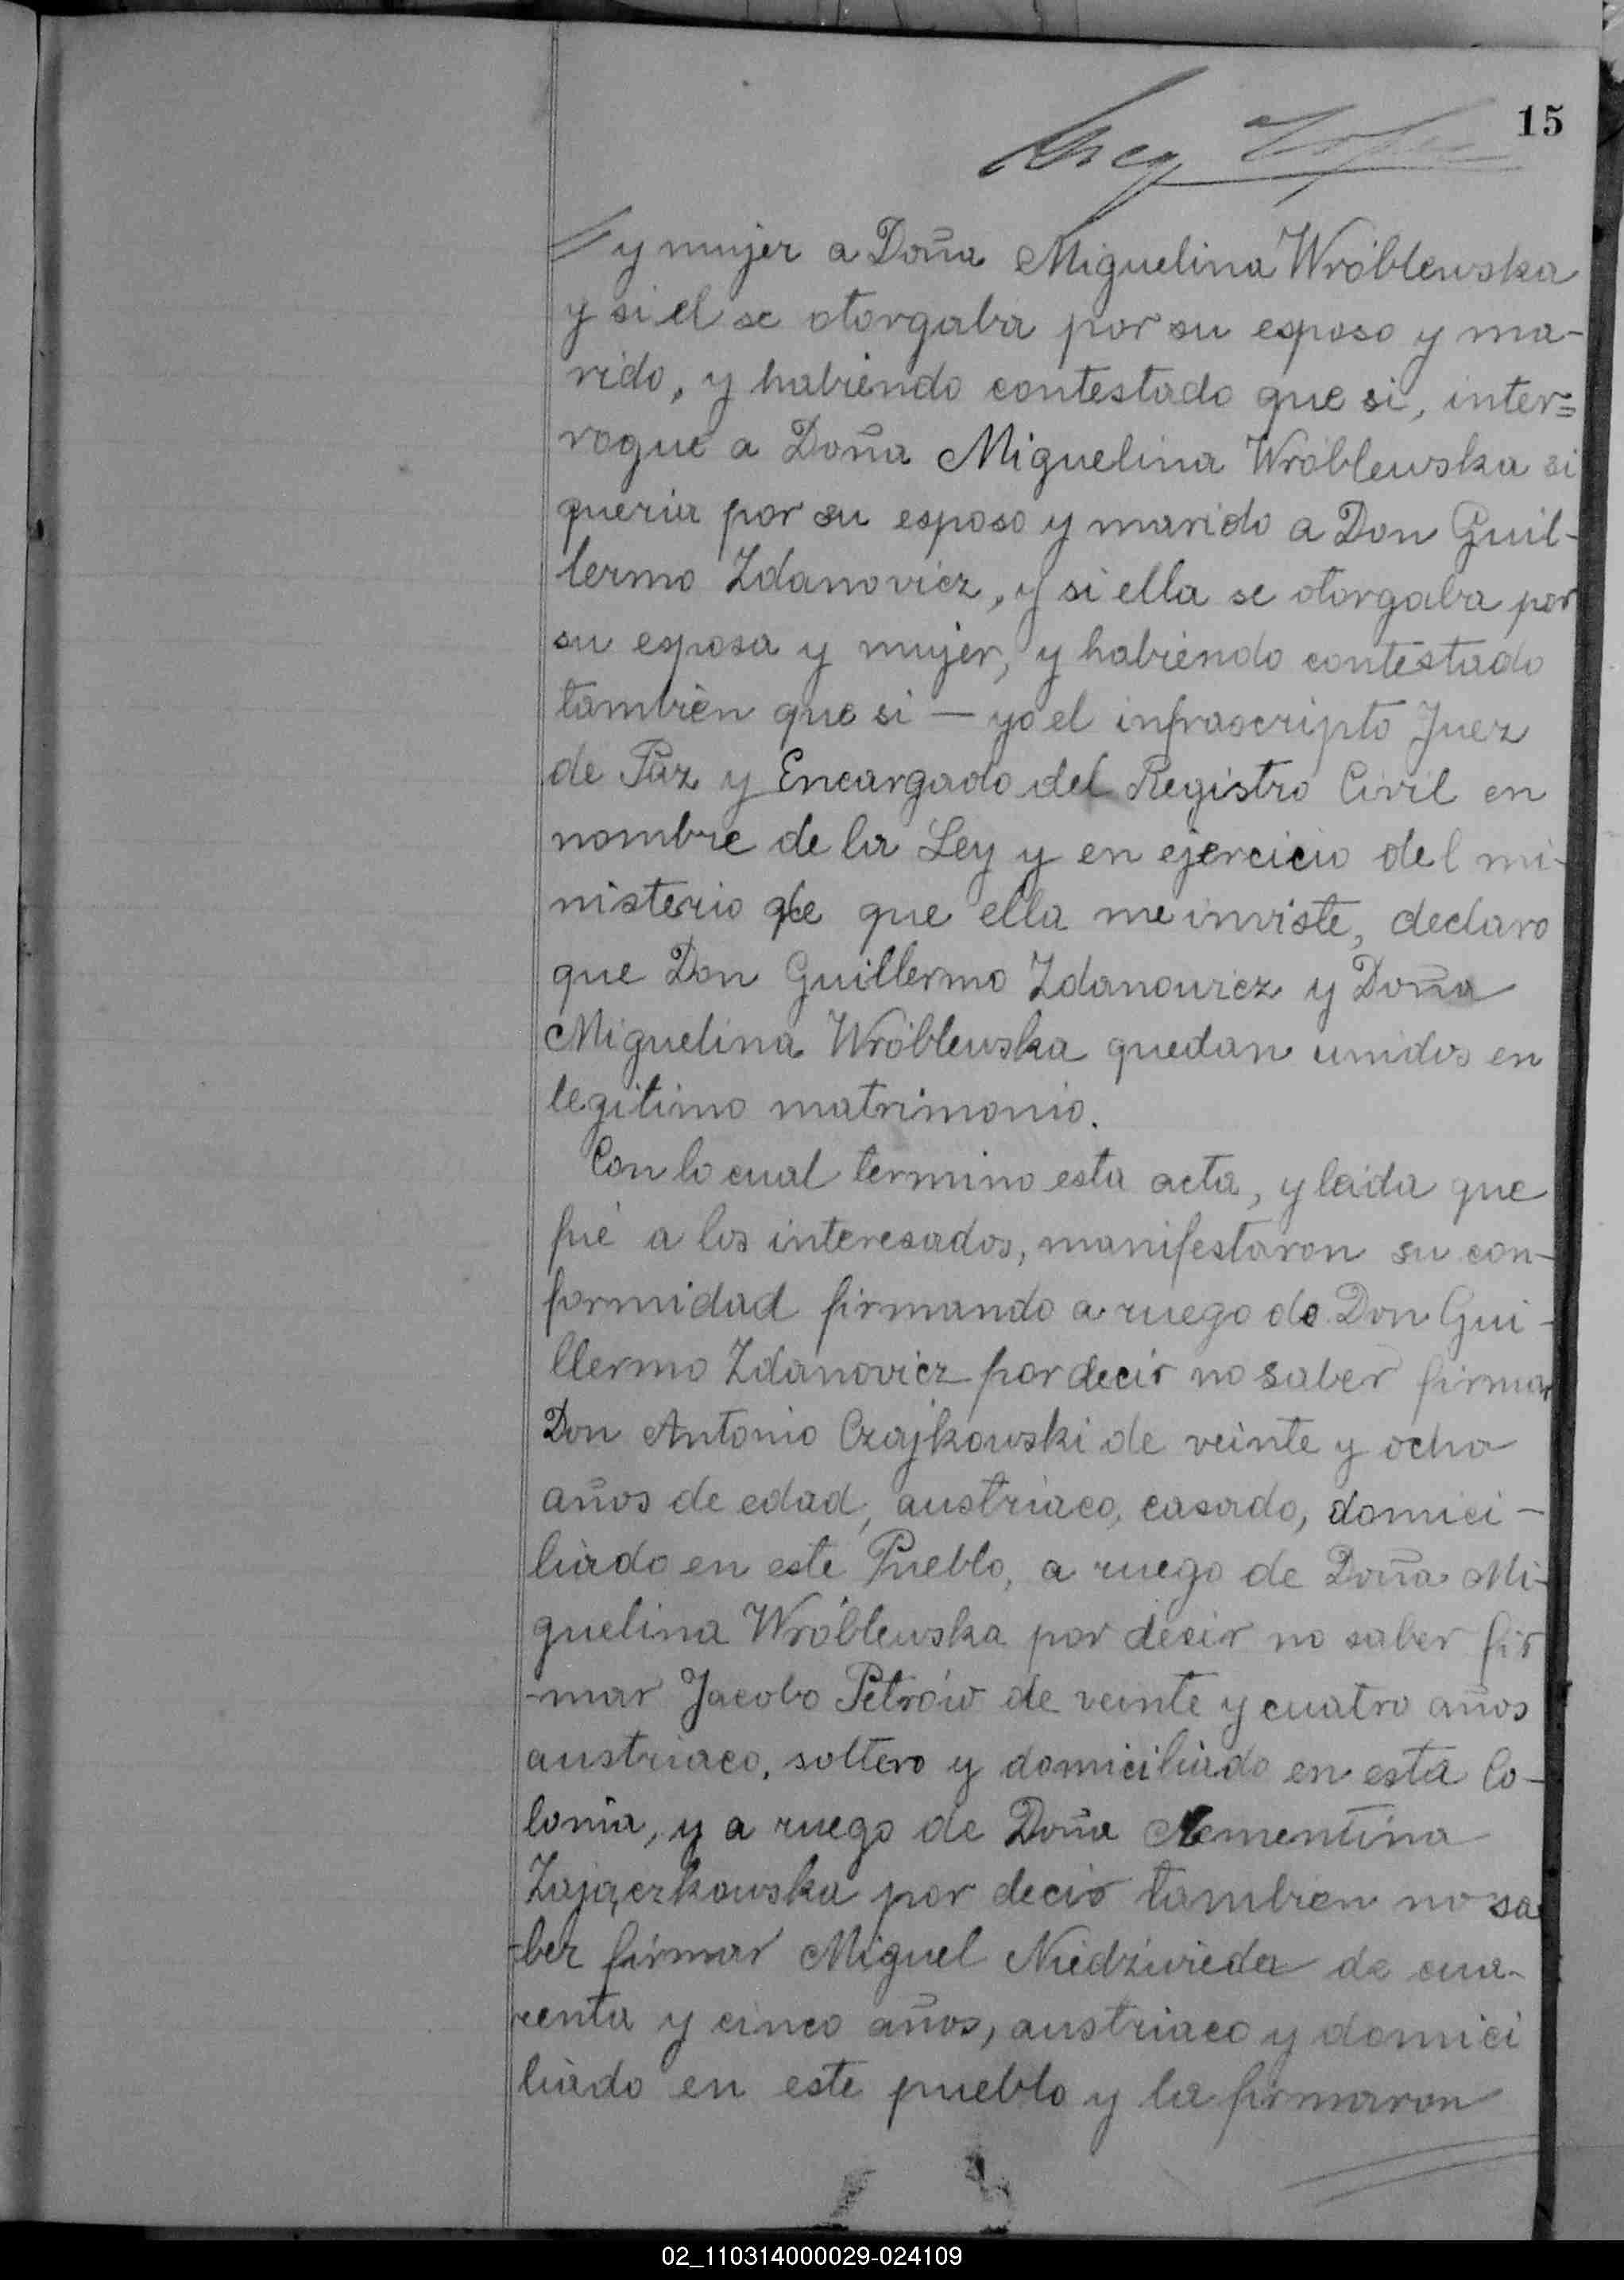 15
y mujer a Doña Miguelina Wróblewska
y si el se otorgaba por su esposo y ma-
rido, y habiendo contestado que si, inter=
rogué a Doña Miguelina Wróblewska si
queria por su esposo y marido a Don Guil-
lermo Zdanovicz, y si ella se otorgaba por
su esposa y mujer, y habiendo contestado
también que si — yo el infrascripto Juez
de Paz y Encargado del Registro Civil en
nombre de la Ley y en ejercicio del mi-
nisterio de que ella me inviste, declaro
que Don Guillermo Zdanowicz y Doña
Miguelina Wróblewska quedan unidos en
legitimo matrimonio.
Con lo cual termino esta acta, y leida que
fué a los interesados, manifestaron su con-
formidad firmando a ruego de Don Gui-
llermo Zdanovicz por decir no saber firmar
Don Antonio Czajkowski de veinte y ocho
años de edad, austriaco, casado, domici-
liado en este Pueblo, a ruego de Doña Mi-
guelina Wróblewska por decir no saber fir
-mar Jacobo Petrów de veinte y cuatro años
austriaco, soltero y domiciliado en esta Co-
lonia, y a ruego de Doña Clementina
Zajączkowska por decir tambien no sa
-ber firmar Miguel Niedzwieda de cua-
renta y cinco años, austriaco y domici
liado en este pueblo y la firmaron
02_110314000029-024109